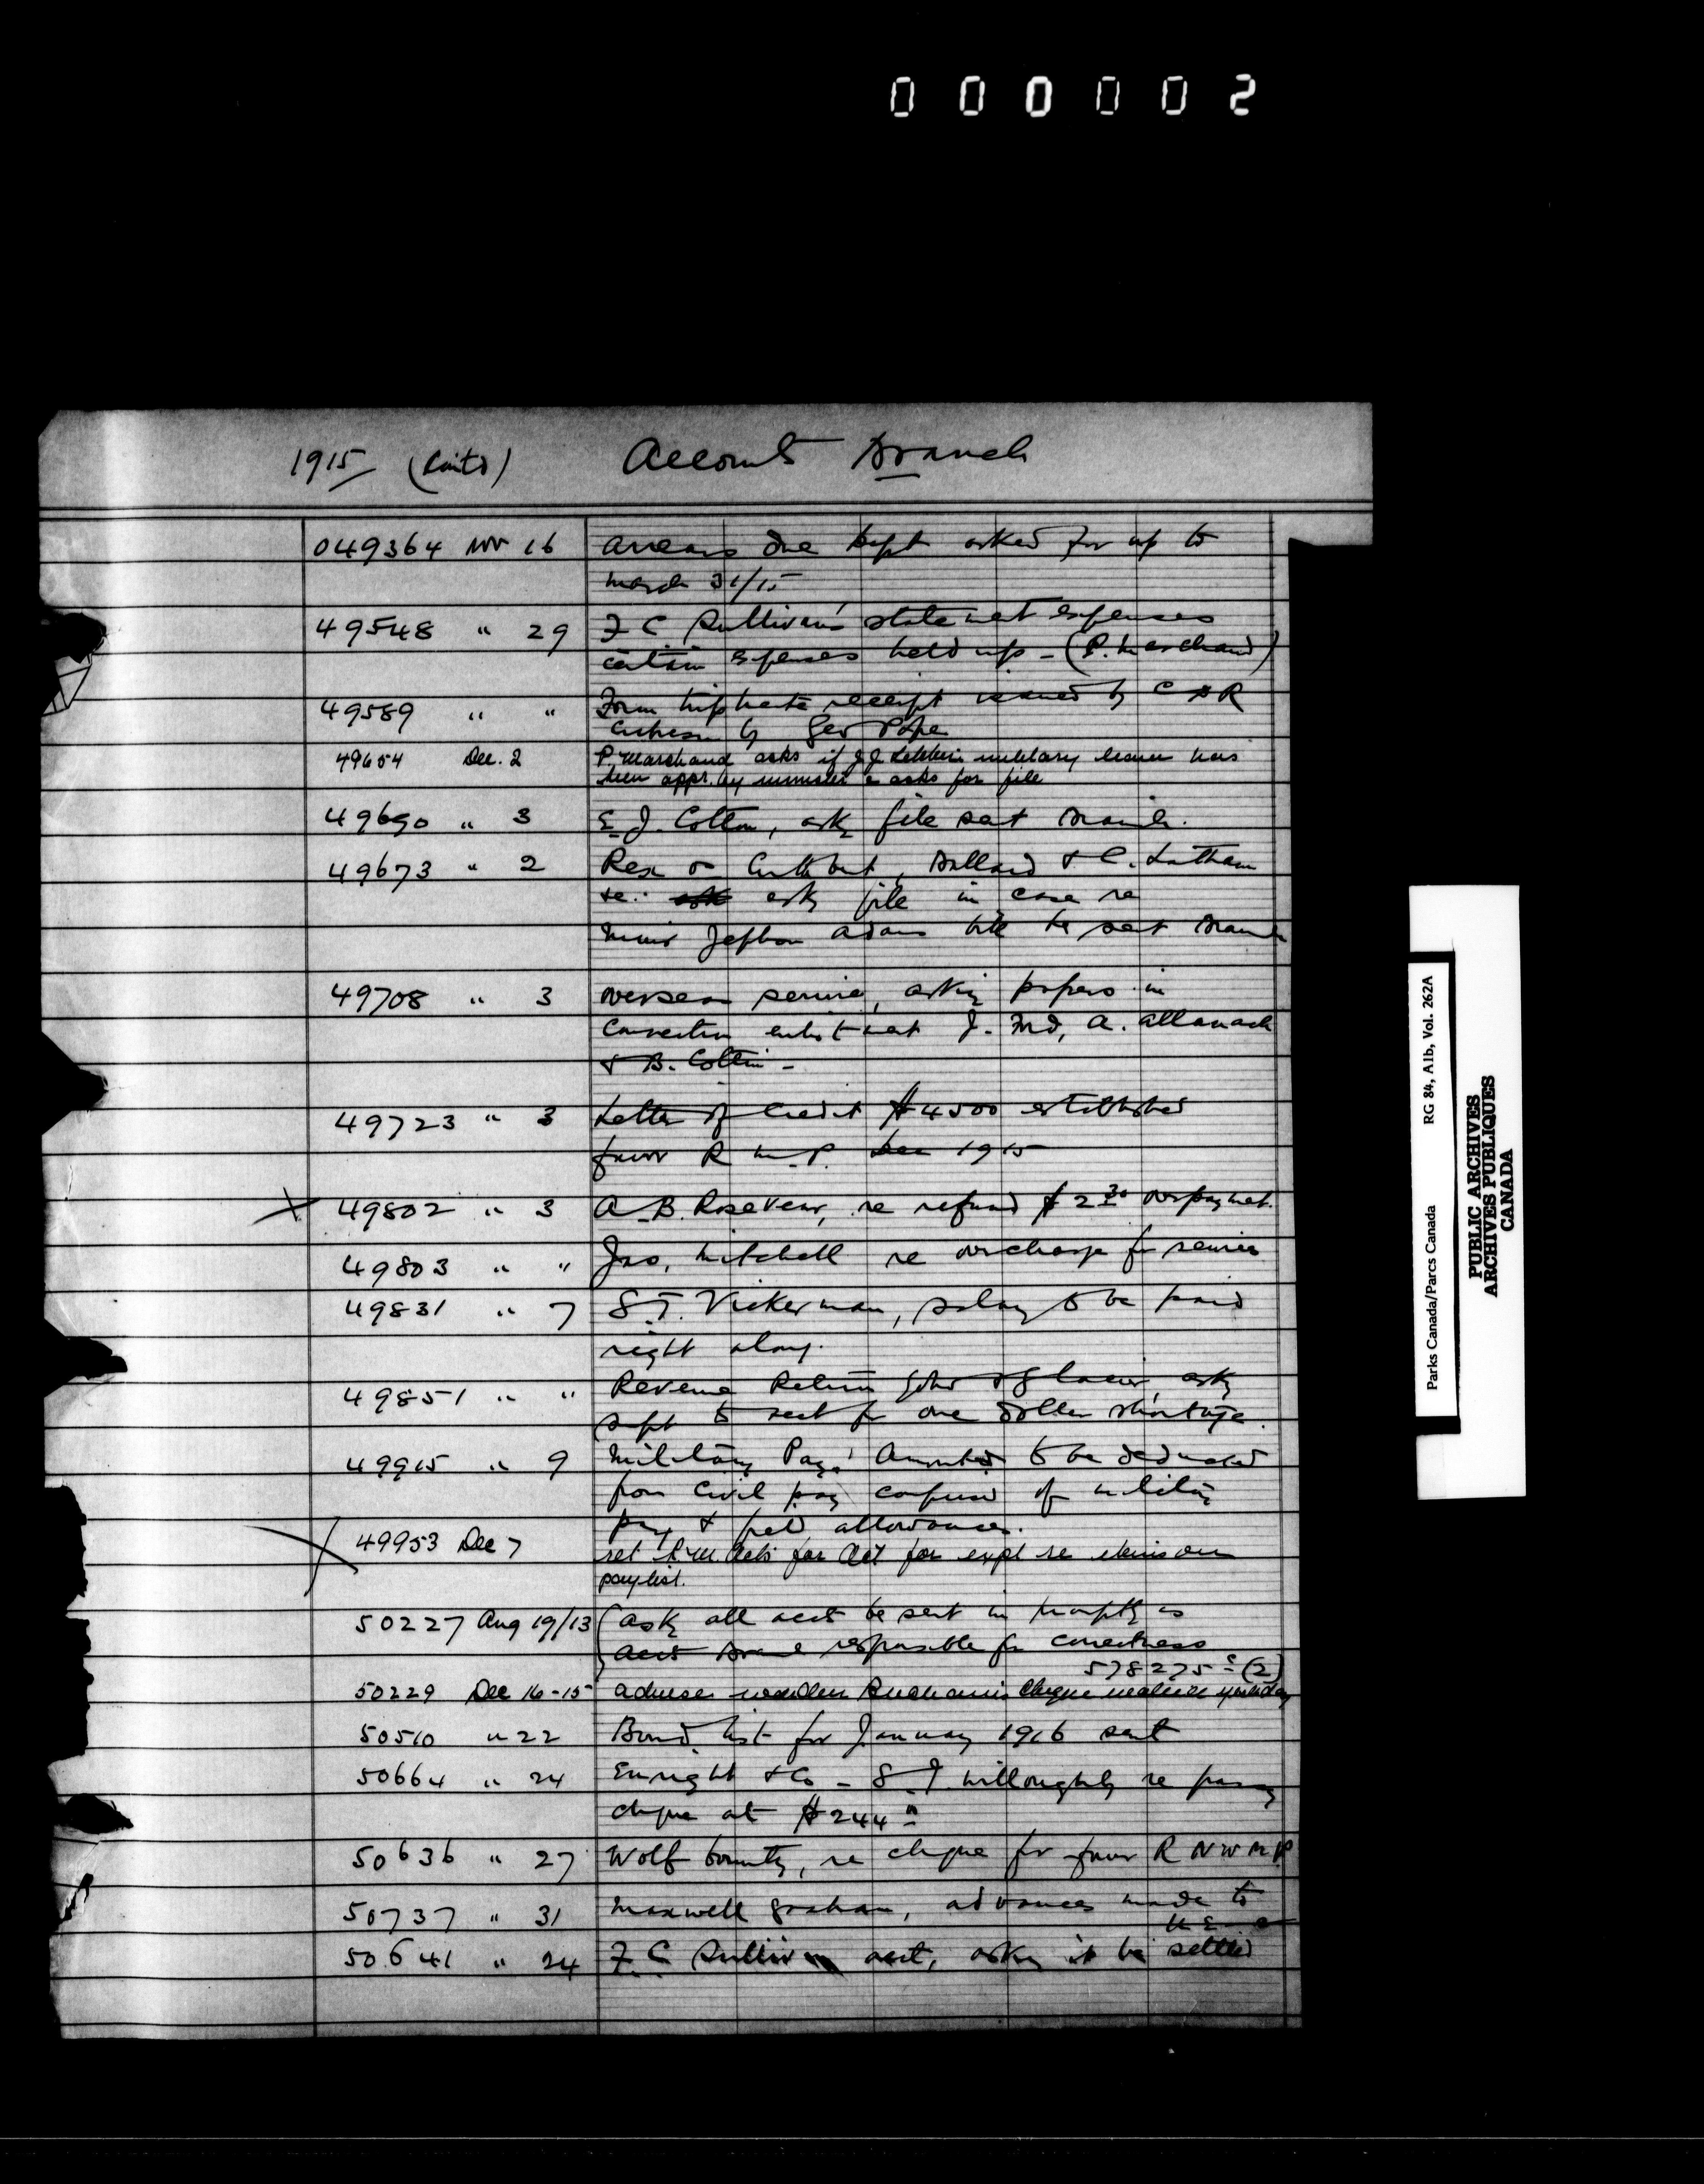 000002
1915 (Cont'd) Accounts Branch
049364 Nov 16 Arrears due Dept asked for up to
March 31/15
49548 " 29 F C Sullivan's statement expenses
certain expenses held up - (P. Marchand)
49589 " " Form triplicate receipt issued by C P R
by Geo Pope
49654 Dec. 2 P. Marchand asks if J J military leave has
been appr. by minister & asks for file
49690 " 3 E. J. Cotton, ask file sent Branch.
49673 " 2 Rex v Cuthbert, Ballard & C. Latham
re: ask file in case re
Adams be sent Branch
49708 " 3 Overseas service, asking papers in
connection enlistment J. Ford, A. Allanach
& B. Cottin -
49723 " 3 Letter of Credit $4500 established
favor R M P. Dec 1915
49802 " 3 A. B. Rosevear, re refund $2.30 overpayment.
49803 " " Jno. Mitchell re overcharge for services
49831 " 7 S. T. Vickerman, salary to be paid
right along.
49851 " " Revenue Return Yoho & Glacier, ask
Supt to rect for one dollar shortage.
49915 " 9 Military Pay. Amounts to be deducted
from Civil pay composed of military
pay & field allowances.
49953 Dec 7 ret P.M. asks for for expl re items on
paylist.
50227 Aug 19/13 Ask all accts be sent in promptly as
Acct Branch responsible for correctness
578275 (2)
50229 Dec 16-15 Advises warden cheque mailed yesterday
50510 " 22 Bond list for January 1916 sent
50664 " 24 Enright & Co - S. J. Willoughby re
cheque at $244
50636 " 27 Wolf bounty, re cheque for favor R N W M P
50737 " 31 Maxwell Graham, advances made to
50641 " 24 F. C Sullivan acct, asking it be settled
Parks Canada/Parcs Canada RG 84, A1b, Vol. 262A
PUBLIC ARCHIVES
ARCHIVES PUBLIQUES
CANADA